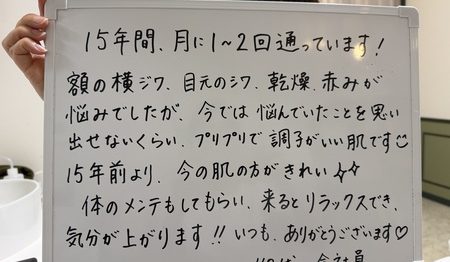 15年間、月に1〜2回通っています!
額の横ジワ、目元のシワ、乾燥、赤みが
悩みでしたが、今では悩んでいたことを思い
出せないくらい、プリプリで調子がいい肌です☺
15年前より、今の肌の方がきれい✧✧
体のメンテもしてもらい、来るとリラックスでき、
気分が上がります!!いつも、ありがとうございます♡
会社員